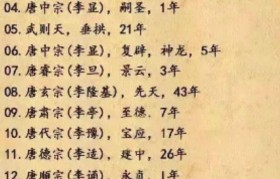 04. 唐中宗(李显), 嗣圣, 1年
05. 武则天, 垂拱, 21年
06. 唐中宗(李显), 复辟, 神龙, 5年
07. 唐睿宗(李旦), 景云, 3年
08. 唐玄宗(李隆基), 先天, 43年
09. 唐肃宗(李亨), 至德, 7年
10. 唐代宗(李豫), 宝应, 17年
11. 唐德宗(李适), 建中, 26年
12. 唐顺宗(李诵), 永贞, 1年